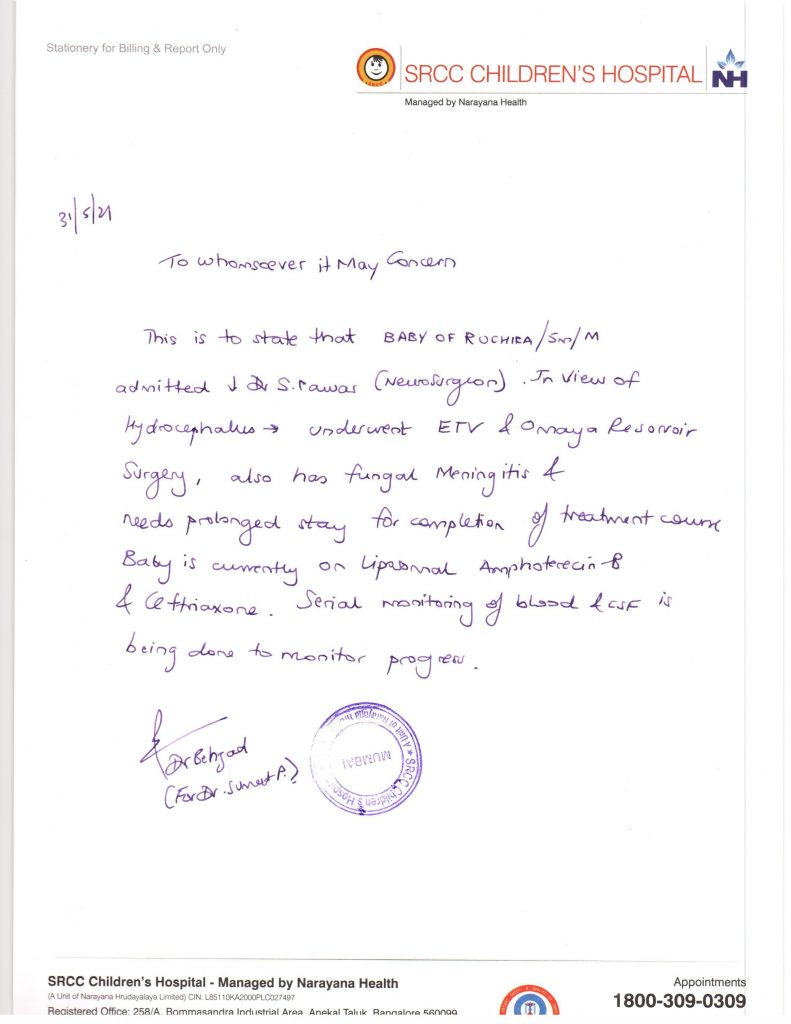 Stationery for Billing & Report Only
SRCC CHILDREN'S HOSPITAL
NH
Managed by Narayana Health
31/5/21
To Whomsoever it May Concern
This is to state that BABY OF RUCHIRA/5m/M
admitted ↓ Dr S. Pawar (Neurosurgeon). In View of
Hydrocephalus → underwent ETV & Omaya Resorvoir
Surgery, also has fungal Meningitis &
needs prolonged stay for completion of treatment course
Baby is currently on Liposomal Amphoterecin-B
& Ceftriaxone. Serial monitoring of blood & CSF is
being done to monitor progress.
Dr Behzad
(For Dr. Sumeet P.)
SRCC Children's Hospital
A Unit of Narayana
MUMBAI
SRCC Children's Hospital - Managed by Narayana Health
(A Unit of Narayana Hrudayalaya Limited) CIN: L85110KA2000PLC027497
Registered Office: 258/A, Bommasandra Industrial Area, Anekal Taluk, Bangalore 560099
Appointments
1800-309-0309